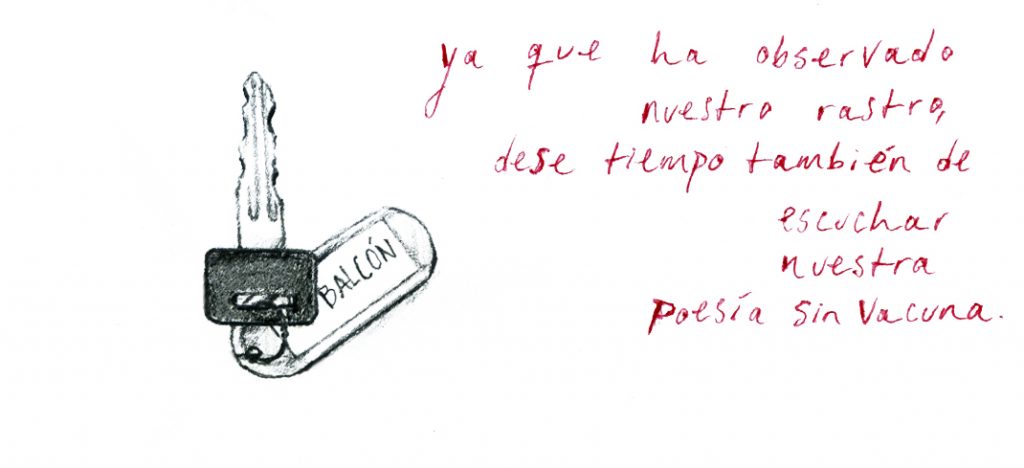 BALCÓN
ya que ha observado
nuestro rastro,
dese tiempo también de
escuchar
nuestra
poesía sin vacuna.